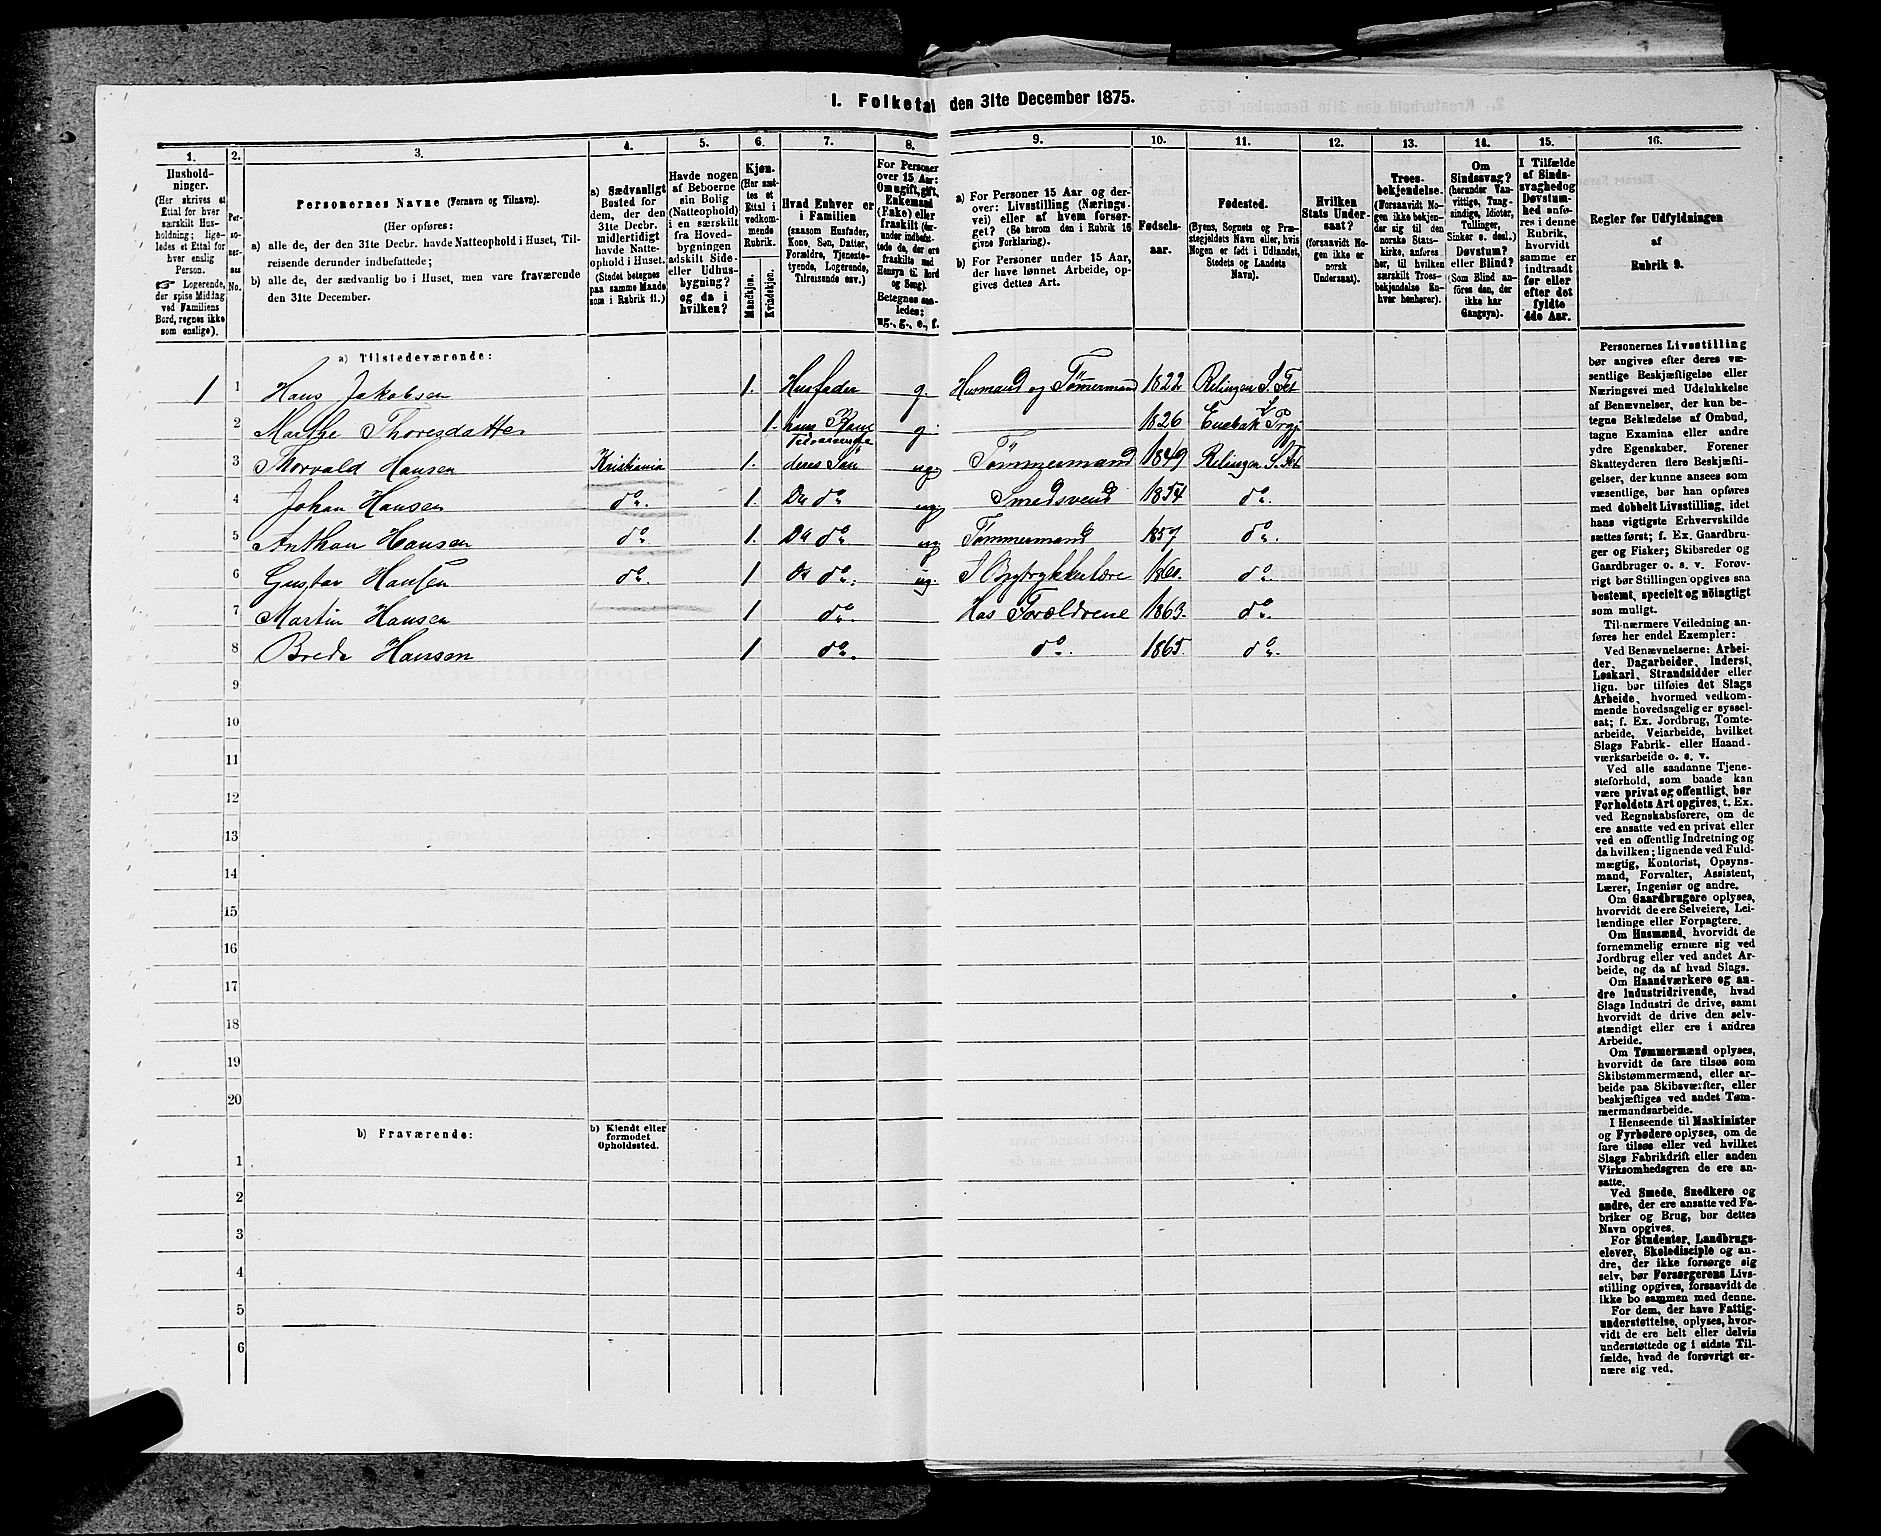 I. Folketal den 31te December 1875.
1. 2. 3. 4. 5. 6. 7. 8. 9. 10. 11. 12. 13. 14. 15. 16.
Hushold-
ninger.
(Her skrives et
Ettal for hver
særskilt Hus-
holdning; lige-
ledes et Ettal for
hver enslig
Person.
☞ Logerende,
der spise Middag
ved Familiens
Bord, regnes ikke
som enslige).
Per-
so-
ner-
nes
No.
Personernes Navne (Fornavn og Tilnavn).
(Her opføres:
a) alle de, der den 31te Decbr. havde Natteophold i Huset, Til-
reisende derunder indbefattede;
b) alle de, der sædvanlig bo i Huset, men vare fraværende
den 31te December.
a) Sædvanligt
Bosted for
dem, der den
31te Decbr.
midlertidigt
havde Natte-
ophold i Huset.
(Stedet betegnes
paa samme Maade
som i Rubrik 11.)
Havde nogen
af Beboerne
sin Bolig
(Natteophold)
i en særskilt
fra Hoved-
bygningen
adskilt Side-
eller Udhus-
bygning?
og da i
hvilken?
Kjøn.
(Her sæt-
tes et
Ettal i
vedkom-
mende
Rubrik.
Mandkjøn.
Kvindekjøn.
Hvad Enhver er
i Familien
(saasom Husfader,
Kone, Søn, Datter,
Forældre, Tjeneste-
tyende, Logerende,
Tilreisende osv.)
For Personer
over 15 Aar:
Om ugift, gift,
Enkemand
(Enke) eller
fraskilt (der-
under indbefat-
tede de, der ere
fraskilte med
Hensyn til Bord
og Seng).
Betegnes saa-
ledes:
ug., g., e., f.
a) For Personer 15 Aar og der-
over: Livsstilling (Nærings-
vei) eller af hvem forsør-
get? (Se herom den i Rubrik 16
givne Forklaring).
b) For Personer under 15 Aar,
der have lønnet Arbeide, op-
gives dettes Art.
Fødsels-
aar.
Fødested.
(Byens, Sognets og Præ-
stegjeldets Navn eller, hvis
Nogen er født i Udlandet,
Stedets og Landets
Navn).
Hvilken
Stats Under-
saat?
(forsaavidt No-
gen ikke er
norsk
Undersaat).
Troes-
bekjendelse.
(Forsaavidt No-
gen ikke bekjen-
der sig til den
norske Stats-
kirke, anføres
her, til hvilken
særskilt Troes-
bekjendelse En-
hver henhører).
Om
Sindssvag?
(herunder Van-
vittige, Tung-
sindige, Idioter,
Tullinger,
Sinker o. desl.)
Døvstum?
eller Blind?
(Som Blind an-
føres den, der
ikke har
Gangsyn).
I Tilfælde
af Sinds-
svaghed og
Døvstum-
hed anfø-
res i denne
Rubrik,
hvorvidt
samme er
indtraadt
før eller
efter det
fyldte
4de Aar.
Regler for Udfyldningen
af
Rubrik 9.
a) Tilstedeværende:
1 1 Hans Jakobsen 1. Husfader g. Husmand og Tömmermand 1822 Relingen S. Fet
2 Marthe Thoresdatter 1. hans Kone g. 1826 Enebak Prgj
3 Thorvald Hansen Kristiania 1. Tilværende deres Sön ug. Tömmermand 1849 Relingen S. Fet
4 Johan Hansen do. 1. Do do ug. Smedsvend 1854 do.
5 Anthon Hansen do 1. Do do. ug. Tømmermand 1857 do.
6 Gustav Hansen do. 1 Do do. ug. 1860. do.
7 Martin Hansen 1 do. Hos Forældrene 1863. do.
8 Brede Hansen 1 do. do. 1865. do.
9
10
11
12
13
14
15
16
17
18
19
20
b) Fraværende:
b) Kjendt eller
formodet
Opholdssted.
1
2
3
4
5
6
Personernes Livsstilling
bør angives efter deres væ-
sentlige Beskjæftigelse eller
Næringsvei med Udelukkelse
af Benævnelser, der kun be-
tegne Beklædelse af Ombud,
tagne Examina eller andre
ydre Egenskaber. Forener
Skatteyderen flere Beskjæfti-
gelser, der kunne ansees som
væsentlige, bør han opføres
med dobbelt Livsstilling, idet
hans vigtigste Erhvervskilde
sættes først; f. Ex. Gaardbru-
ger og Fisker; Skibsreder og
Gaardbruger o. s. v. Forøv-
rigt bør Stillingen opgives saa
bestemt, specielt og nöiagtigt
som muligt.
Til nærmere Veiledning an-
føres her endel Exempler:
Ved Benævnelserne: Arbei-
der, Dagarbeider, Inderst,
Løskarl, Strandsidder eller
lign. bør tilføies det Slags
Arbeide, hvormed vedkom-
mende hovedsagelig er syssel-
sat; f. Ex. Jordbrug, Tomte-
arbeide, Veiarbeide, hvilket
Slags Fabrik- eller Haand-
værksarbeide o. s. v.
Ved alle saadanne Tjene-
steforhold, som baade kan
være privat og offentligt, bør
Forholdets Art opgives, t. Ex.
ved Regnskabsførere, om de
ere ansatte ved en privat eller
ved en offentlig Indretning og
da hvilken; lignende ved Fuld-
mægtig, Kontorist, Opsyns-
mand, Forvalter, Assistent,
Lærer, Ingeniør og andre.
Om Gaardbrugere oplyses,
hvorvidt de ere Selveiere, Lei-
lændinge eller Forpagtere.
Om Husmænd, hvorvidt de
fornemmelig ernære sig ved
Jordbrug eller ved andet Ar-
beide, og da af hvad Slags.
Om Haandværkere og an-
dre Industridrivende, hvad
Slags Industri de drive, samt
hvorvidt de drive den selv-
stændigt eller ere i andres
Arbeide.
Om Tømmermænd oplyses,
hvorvidt de fare tilsøs som
Skibstømmermænd, eller ar-
beide paa Skibsværfter, eller
beskjæftiges ved andet Tøm-
mermandsarbeide.
I Henseende til Maskinister
og Fyrbødere oplyses, om de
fare tilsøs eller ved hvilket
Slags Fabrikdrift eller anden
Virksomhedsgren de ere an-
satte.
Ved Smede, Snedkere og
andre, der ere ansatte ved Fa-
briker og Brug, bør dettes
Navn opgives.
For Studenter, Landbrugs-
elever, Skoledisciple og an-
dre, der ikke forsørge sig
selv, bør Forsørgerens Livs-
stilling opgives, forsaavidt de
ikke bo sammen med denne.
For dem, der have Fattig-
understøttelse, oplyses, hvor-
vidt de ere helt eller delvis
understøttede og i sidste Til-
fælde, hvad de forøvrigt er-
nære sig ved.